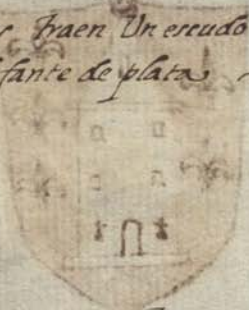 Traen Un escudo
fante de plata